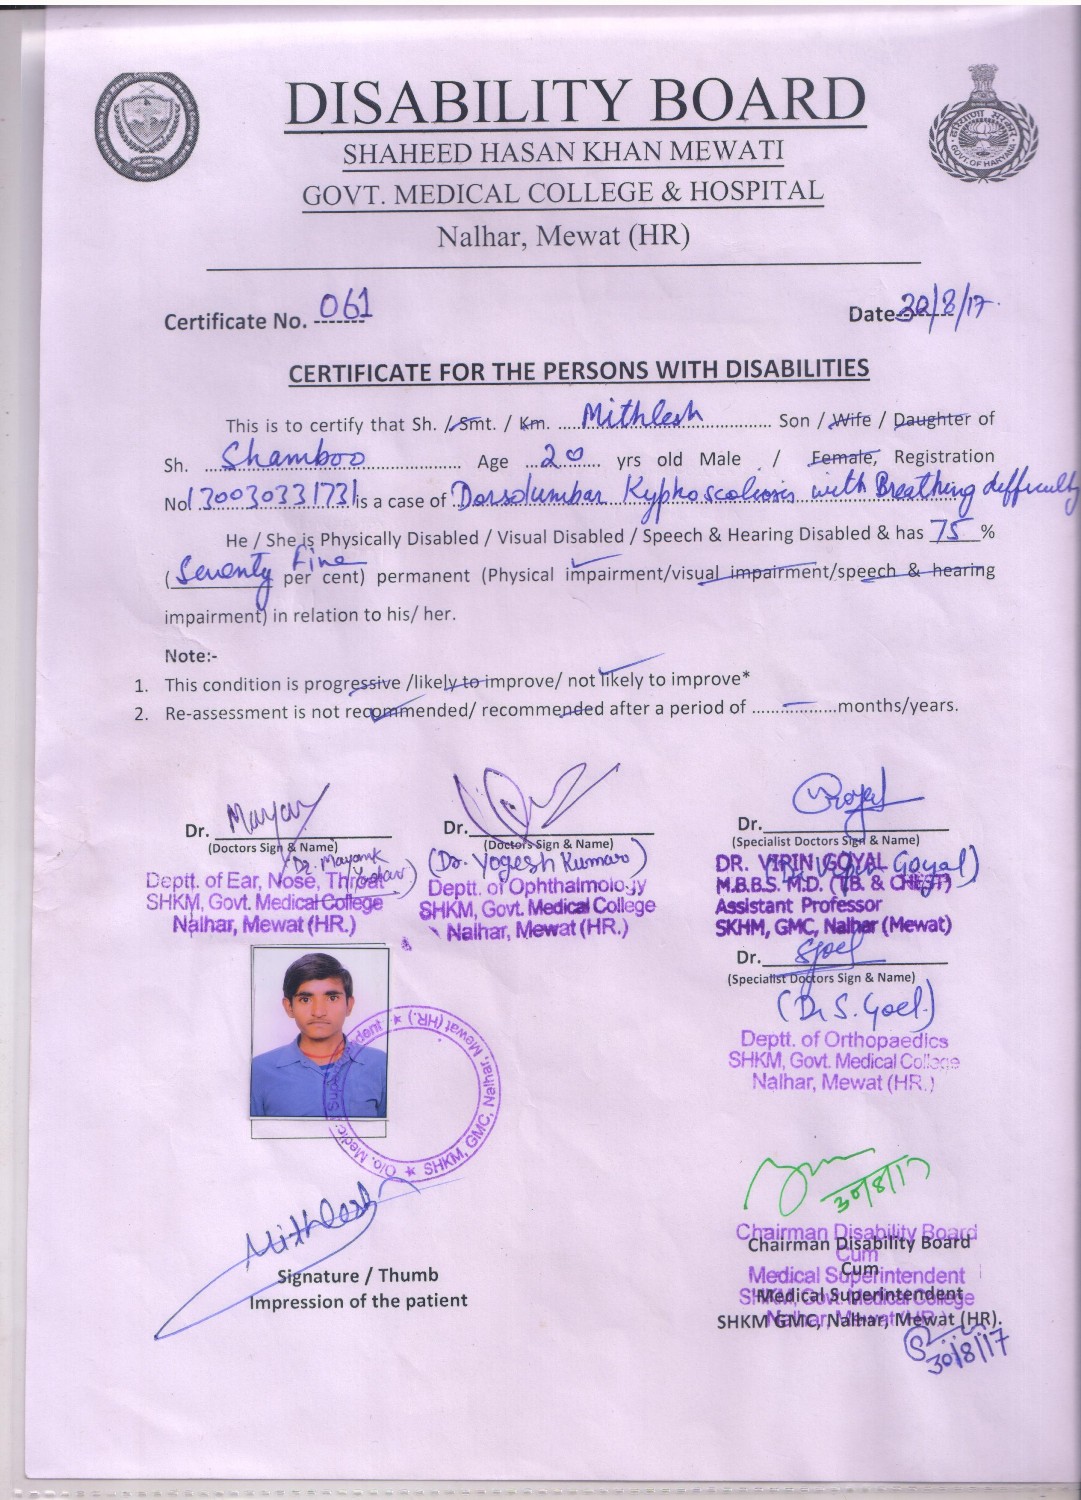 DISABILITY BOARD
SHAHEED HASAN KHAN MEWATI
GOVT. MEDICAL COLLEGE & HOSPITAL
Nalhar, Mewat (HR)
GOVT. OF HARYANA
Certificate No. 061
Date 30/8/17
CERTIFICATE FOR THE PERSONS WITH DISABILITIES
This is to certify that Sh. / Smt. / Km. Mithlesh Son / Wife / Daughter of
Sh. Shamboo Age 20 yrs old Male / Female, Registration
No 130030331731 is a case of Dorsolumbar Kyphoscoliosis with Breathing difficulty
He / She is Physically Disabled / Visual Disabled / Speech & Hearing Disabled & has 75 %
(Seventy Five per cent) permanent (Physical impairment/visual impairment/speech & hearing
impairment) in relation to his/ her.
Note:-
1. This condition is progressive /likely to improve/ not likely to improve*
2. Re-assessment is not recommended/ recommended after a period of .................months/years.
Dr. Mayank
(Doctors Sign & Name)
Dr. Mayank
Deptt. of Ear, Nose, Throat
SHKM, Govt. Medical College
Nalhar, Mewat (HR.)
Dr.
(Doctors Sign & Name)
(Dr. Yogesh Kumar)
Deptt. of Ophthalmology
SHKM, Govt. Medical College
Nalhar, Mewat (HR.)
Dr.
(Specialist Doctors Sign & Name)
DR. VIPIN GOYAL
Goyal)
M.B.B.S. M.D. (TB. & CHEST)
Assistant Professor
SKHM, GMC, Nalhar (Mewat)
Dr. SGoel
(Specialist Doctors Sign & Name)
(Dr S. Goel)
Deptt. of Orthopaedics
SHKM, Govt. Medical College
Nalhar, Mewat (HR.)
O/o. Medical Superintendent ★ SHKM, GMC, Nalhar, Mewat (HR.) ★
Mithlesh
Signature / Thumb
Impression of the patient
30/8/17
Chairman Disability Board
Cum
Medical Superintendent
SHKM, Govt. Medical College
Nalhar, Mewat (HR.)
Chairman Disability Board
Cum
Medical Superintendent
SHKM GMC, Nalhar, Mewat (HR).
30/8/17